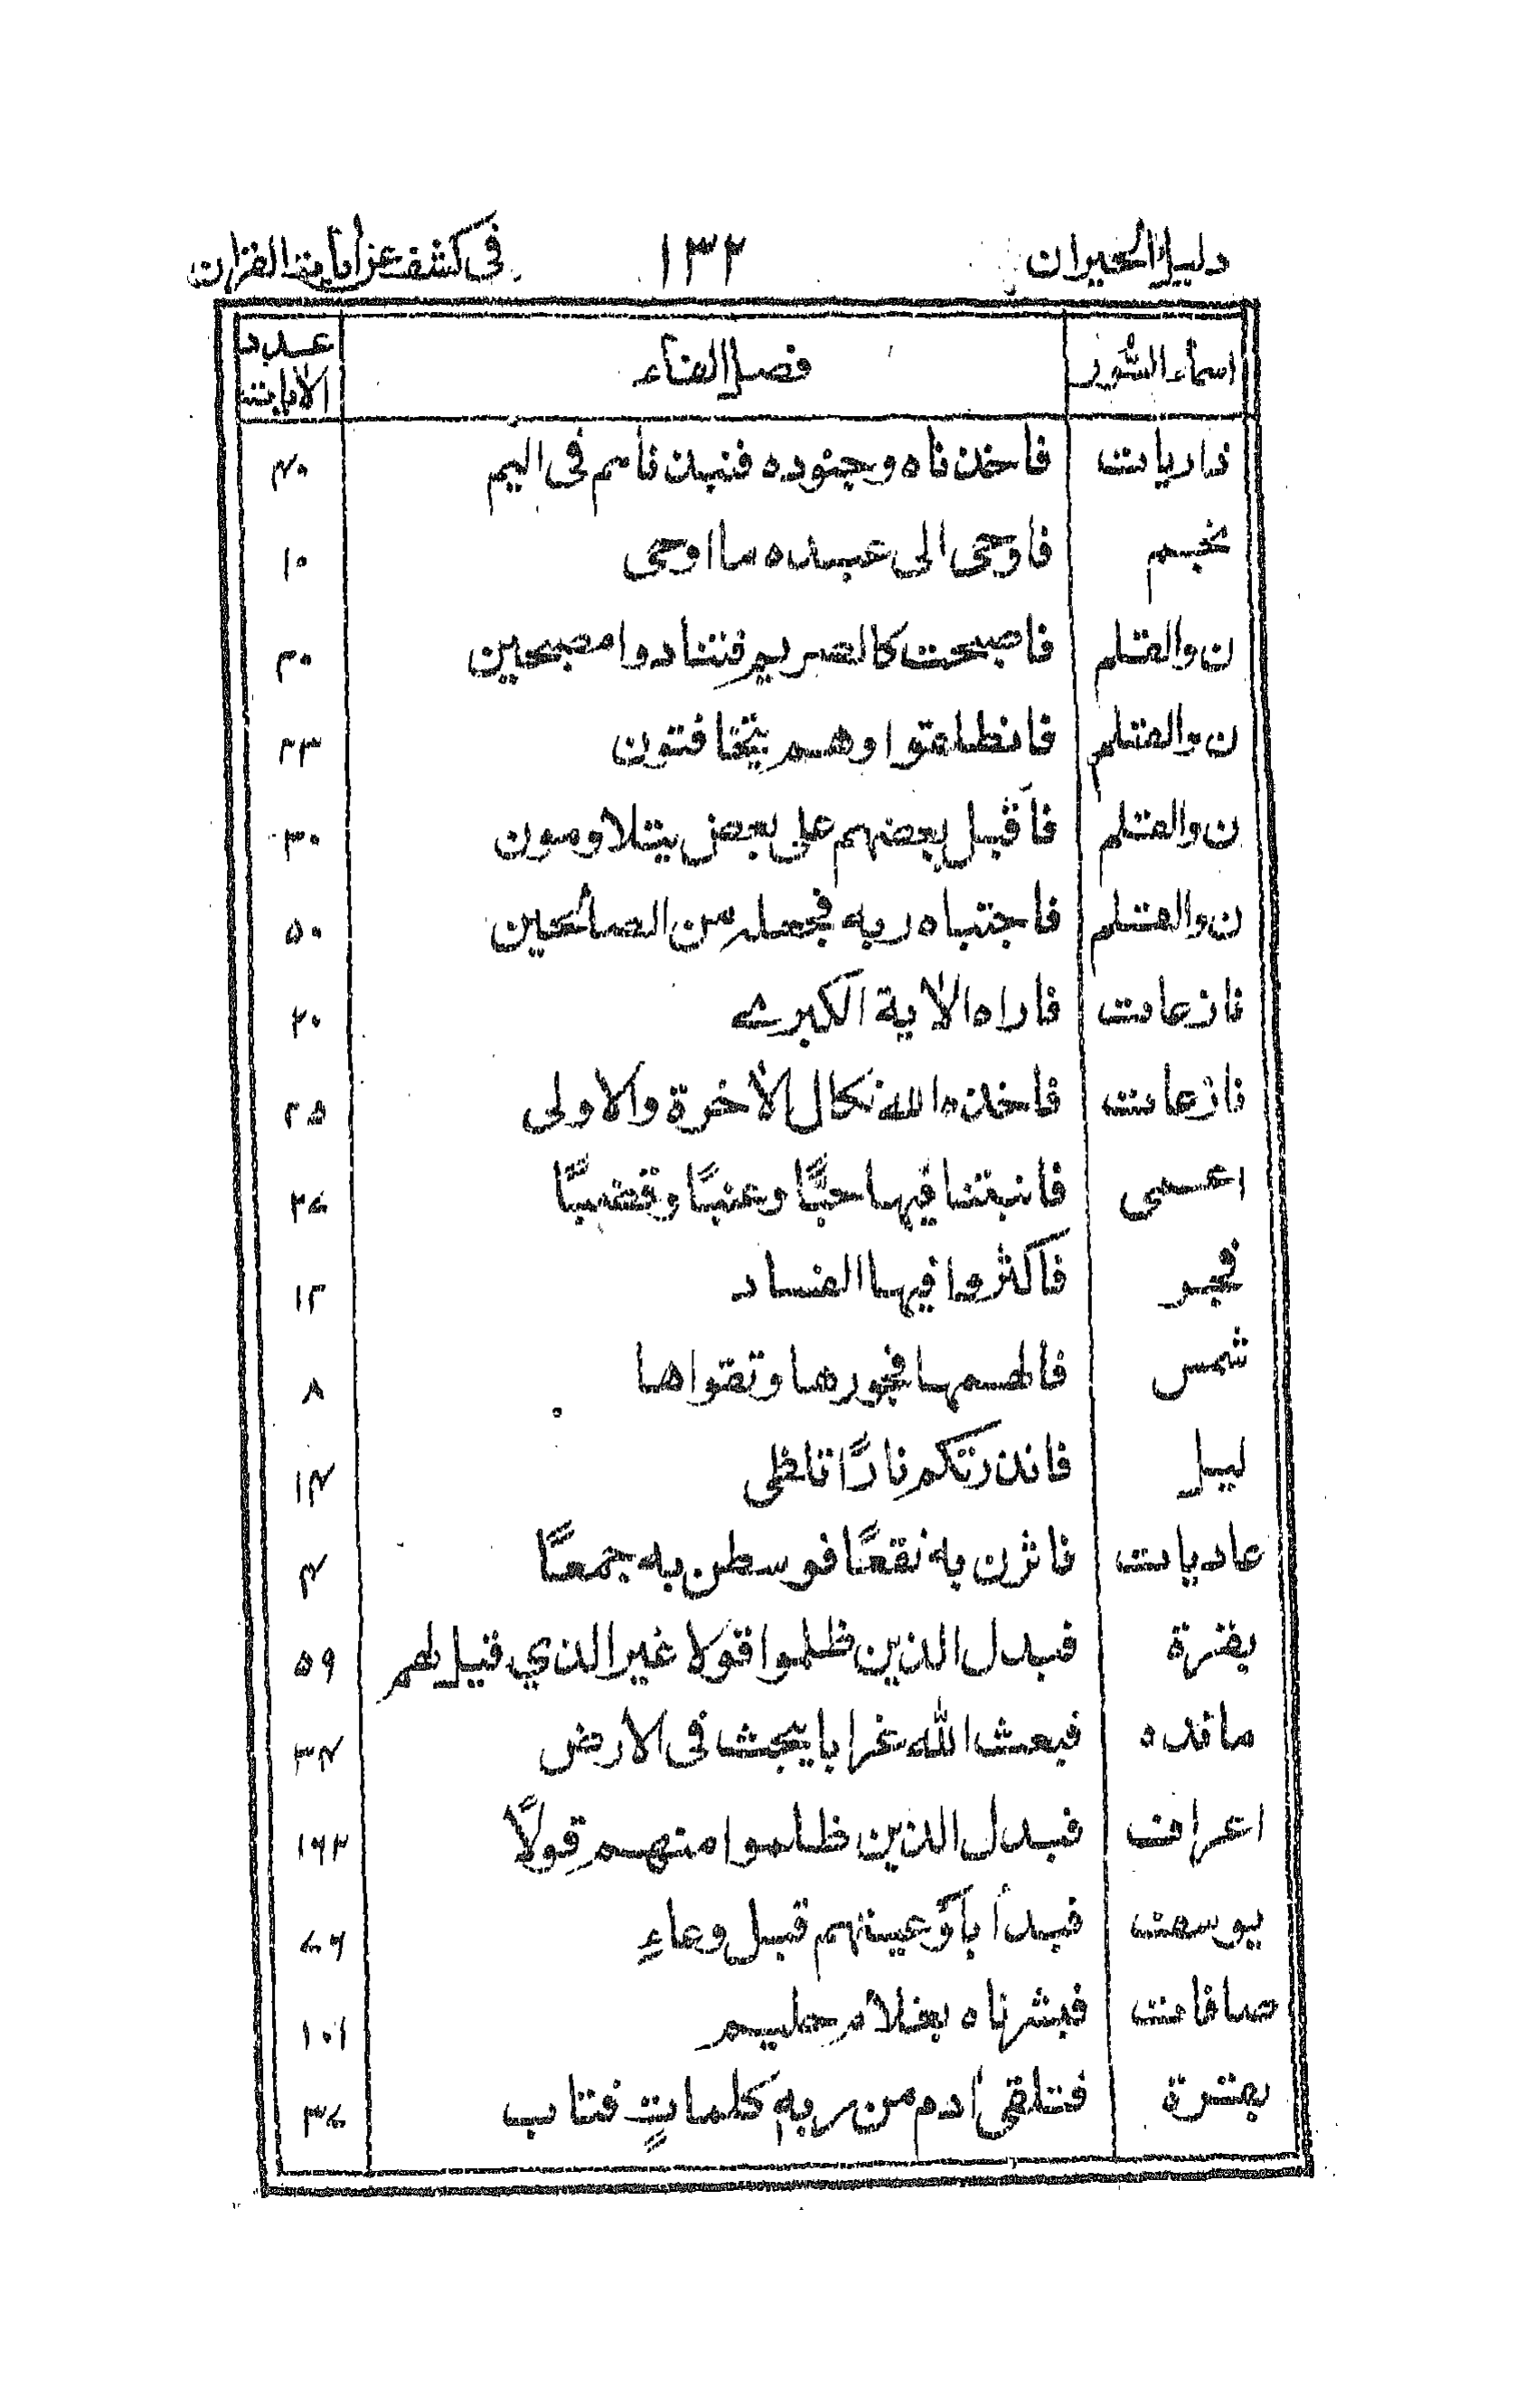 دليل الحيران ١٣٢ في كشف عن أيات القرآن
اسماء السُّور فصل الفاء عدد الآيات
ذاريات فاخذناه وجنوده فنبذناهم فى اليم ٤٠
نجم فاوحى الى عبده ما اوحى ١٠
ن والقلم فاصبحت كالصريم فتنادوا مصبحين ٢٠
ن والقلم فانطلقوا وهم يتخافتون ٢٣
ن والقلم فأقبل بعضهم على بعض يتلاومون ٣٠
ن والقلم فاجتباه ربه فجعله من الصالحين ٥٠
نازعات فاراه الاية الكبرى ٢٠
نازعات فاخذه الله نكال الأخرة والاولى ٢٥
اعمى فانبتنا فيها حبًّا وعنبًا وقضبًا ٢٧
فجر فاكثروا فيها الفساد ١٢
شمس فالهمها فجورها وتقواها ٨
ليل فانذرتكم نارًا تلظى ١٤
عاديات فاثرن به نقعًا فوسطن به جمعًا ٤
بقرة فبدل الذين ظلموا قولا غير الذي قيل لهم ٥٩
مائده فبعث الله غرابا يبحث فى الارض ٣٤
اعراف فبدل الذين ظلموا منهم قولًا ١٦٢
يوسف فبدأ بأوعيتهم قبل وعاءِ ٧٦
صافات فبشرناه بغلام حليم ١٠١
بقرة فتلقى أدم من ربه كلماتٍ فتاب ٣٧